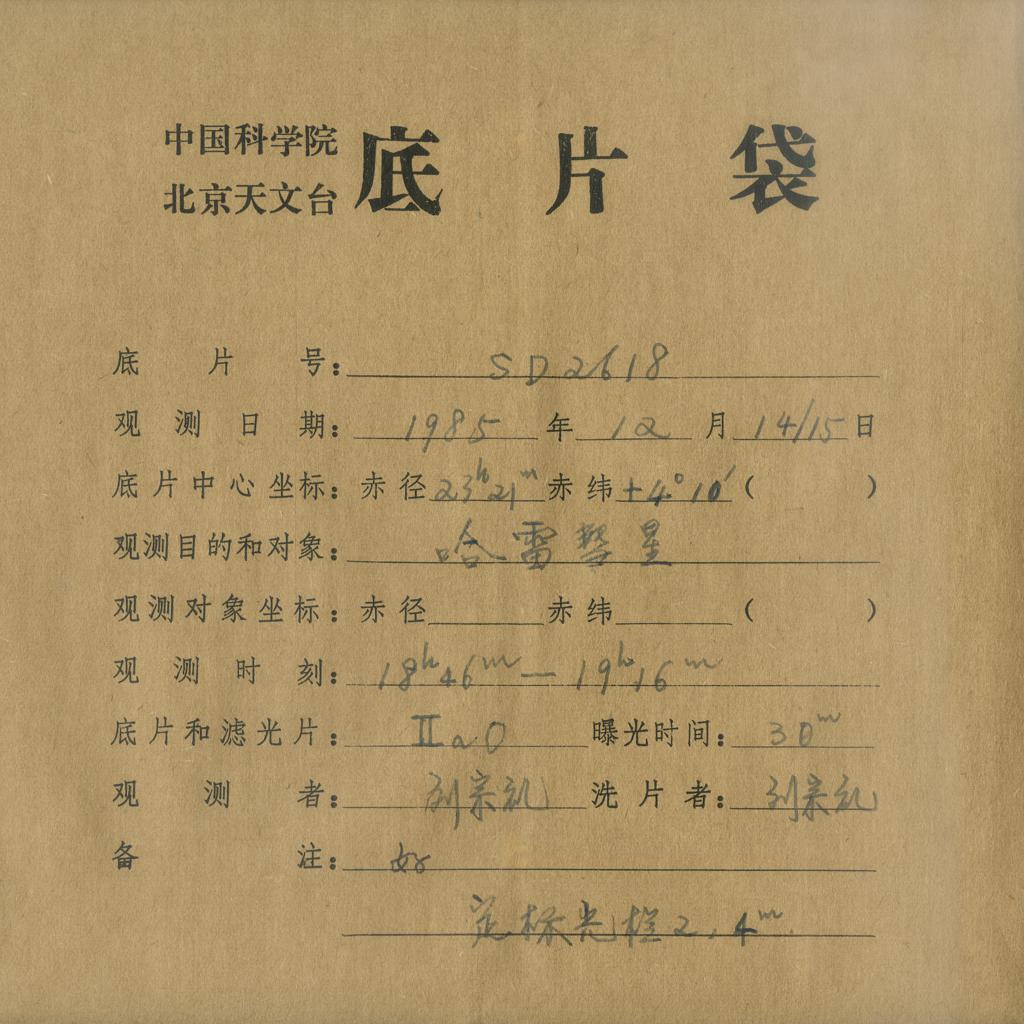 中国科学院
北京天文台
底片袋
底片号：SD2618
观测日期：1985年12月14/15日
底片中心坐标：赤径23h21m赤纬+4°10′（ ）
观测目的和对象：哈雷彗星
观测对象坐标：赤径 赤纬 （ ）
观测时刻：18h46m—19h16m
底片和滤光片：IIaO 曝光时间：30m
观测者：刘宗礼 洗片者：刘宗礼
备注：好
标光栏2.4m